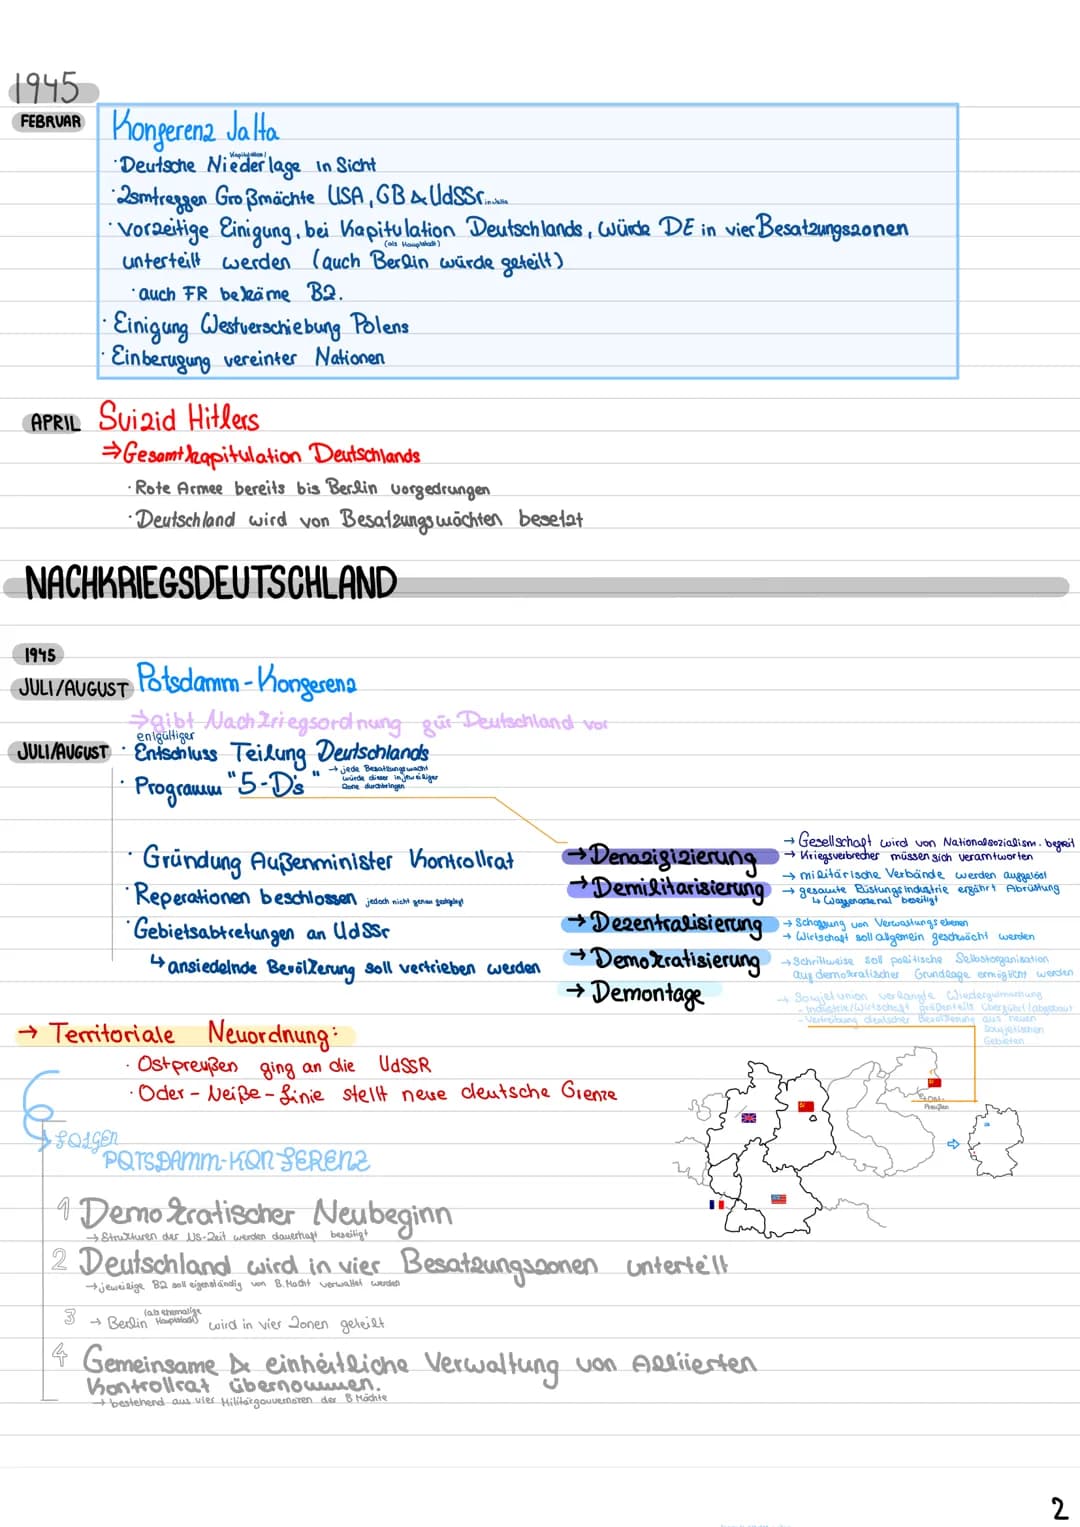 1945
FEBRUAR
Konferenz Jalta
Kapitulation/
· Deutsche Niederlage in Sicht
· Zsmtreffen Großmächte USA, GB & UdSSr in Jalta
· vorzeitige Einigung, bei Kapitulation Deutschlands, würde DE in vier Besatzungszonen
(als Hauptstadt)
unterteilt werden (auch Berlin würde geteilt)
· auch FR bekäme BZ.
· Einigung Westverschiebung Polens
· Einberufung vereinter Nationen
APRIL Suizid Hitlers
⇒ Gesamtkapitulation Deutschlands
· Rote Armee bereits bis Berlin vorgedrungen
· Deutschland wird von Besatzungsmächten besetzt
NACHKRIEGSDEUTSCHLAND
1945
JULI/AUGUST Potsdamm-Konferenz
⇒ gibt Nachkriegsordnung für Deutschland vor
entgültiger
JULI/AUGUST · Entschluss Teilung Deutschlands
· Programm "5-D's"
→ jede Besatzungsmacht
würde dieser in jeweiliger
Zone durchbringen
· Gründung Außenminister Kontrollrat
· Reperationen beschlossen jedoch nicht genau festgelegt
· Gebietsabtretungen an UdSSr
↳ ansiedelnde Bevölkerung soll vertrieben werden
→ Denazifizierung
→ Gesellschaft wird von Nationalsozialism. befreit
→ Kriegsverbrecher müssen sich verantworten
→ Demilitarisierung
→ militärische Verbände werden aufgelöst
→ gesamte Rüstungsindustrie erfährt Abrüstung
↳ Waffenarsenal beseitigt
→ Dezentralisierung
→ Schaffung von Verwaltungsebenen
→ Wirtschaft soll allgemein geschwächt werden
→ Demokratisierung
→ Schrittweise soll politische Selbstorganisation
auf demokratischer Grundlage ermöglicht werden
→ Demontage
→ Sowjetunion verlangte Wiedergutmachung
- Industrie/Wirtschaft größtenteils überführt/abgebaut
- Vertreibung deutscher Bevölkerung aus neuen
Sowjetischen
Gebieten
→ Territoriale Neuordnung:
· Ostpreußen ging an die UdSSR
· Oder-Neiße-Linie stellt neue deutsche Grenze
Preußen
FOLGEN
POTSDAMM-KONFERENZ
1 Demokratischer Neubeginn
→ Strukturen der NS-Zeit werden dauerhaft beseitigt
2 Deutschland wird in vier Besatzungszonen unterteilt
→ jeweilige BZ soll eigenständig von B.Macht verwaltet werden
3 → Berlin (als ehemalige Hauptstadt) wird in vier Zonen geteilt
4 Gemeinsame & einheitliche Verwaltung von Alliierten
Kontrollrat übernommen.
→ bestehend aus vier Militärgouverneren der B Mächte
2